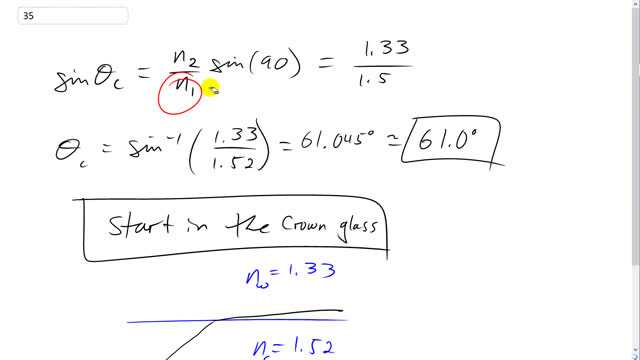 35
sin θc = n2/n1 sin(90) = 1.33/1.5
θc = sin⁻¹(1.33/1.52) = 61.045° ≈ 61.0°
Start in the Crown glass
nw = 1.33
n = 1.52